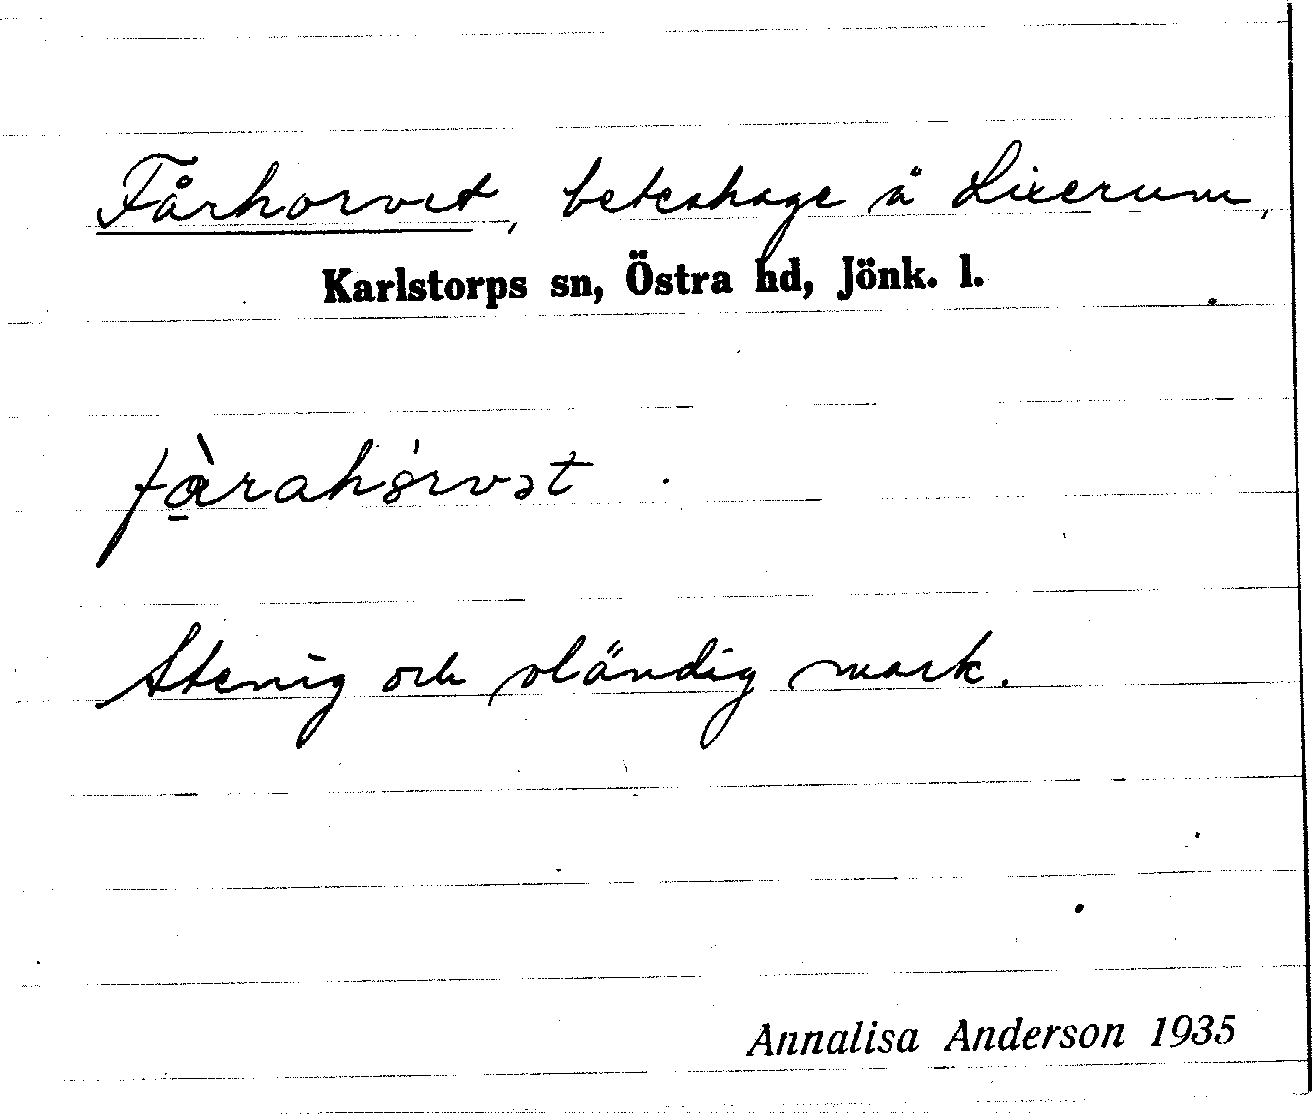 Fårhorvet, beteshage å Lixerum,
Karlstorps sn, Östra hd, Jönk. l.
fàrahórvət.
Stenig och oländig mark.
Annalisa Anderson 1935